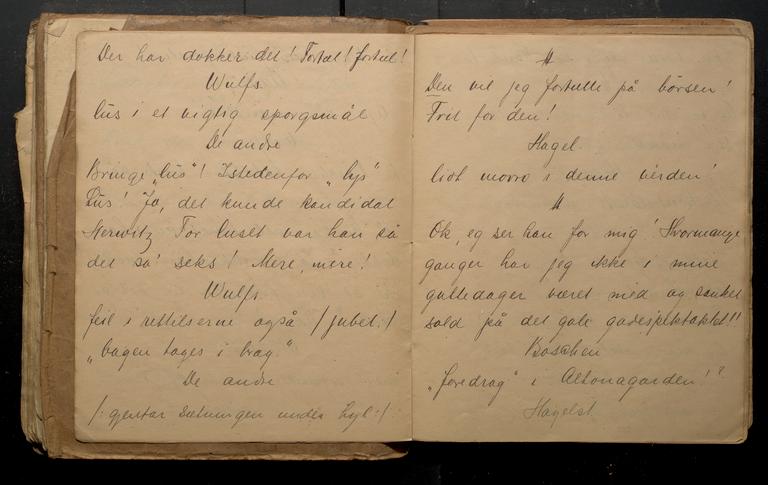 Der har dokker det! Fortæl! fortæl!
Wulfs.
lüs i et vigtig sporgsmål
De andre
Bringe „lüs"! Istedenfor „lys"
Lüs! Ja, det kunde kandidat
Nerwitz For luset var han så
det så' seks! Mere, mere!
Wulfs.
feil i rettelserne også /: jubel :/
„bagen tages i brag."
De andre
/: gjentar sætningen under hyl :/
"
Den vil jeg fortælle på børsen!
Frit for den!
Hagel.
lidt morro i denne verden!
"
Ok, eg ser han for mig! Hvormange
ganger har jeg ikke i mine
guttedager været med og sanket
sold på det gale gadespektaklet!!
Boschen
„foredrag" i Altonagården!?
Hagelst.